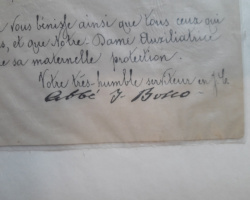 vous bénisse ainsi que tous ceux qui
s, et que Notre Dame Auxiliatrice
sa maternelle protection.
Votre très-humble serviteur en J.
Abbé J. Bosco